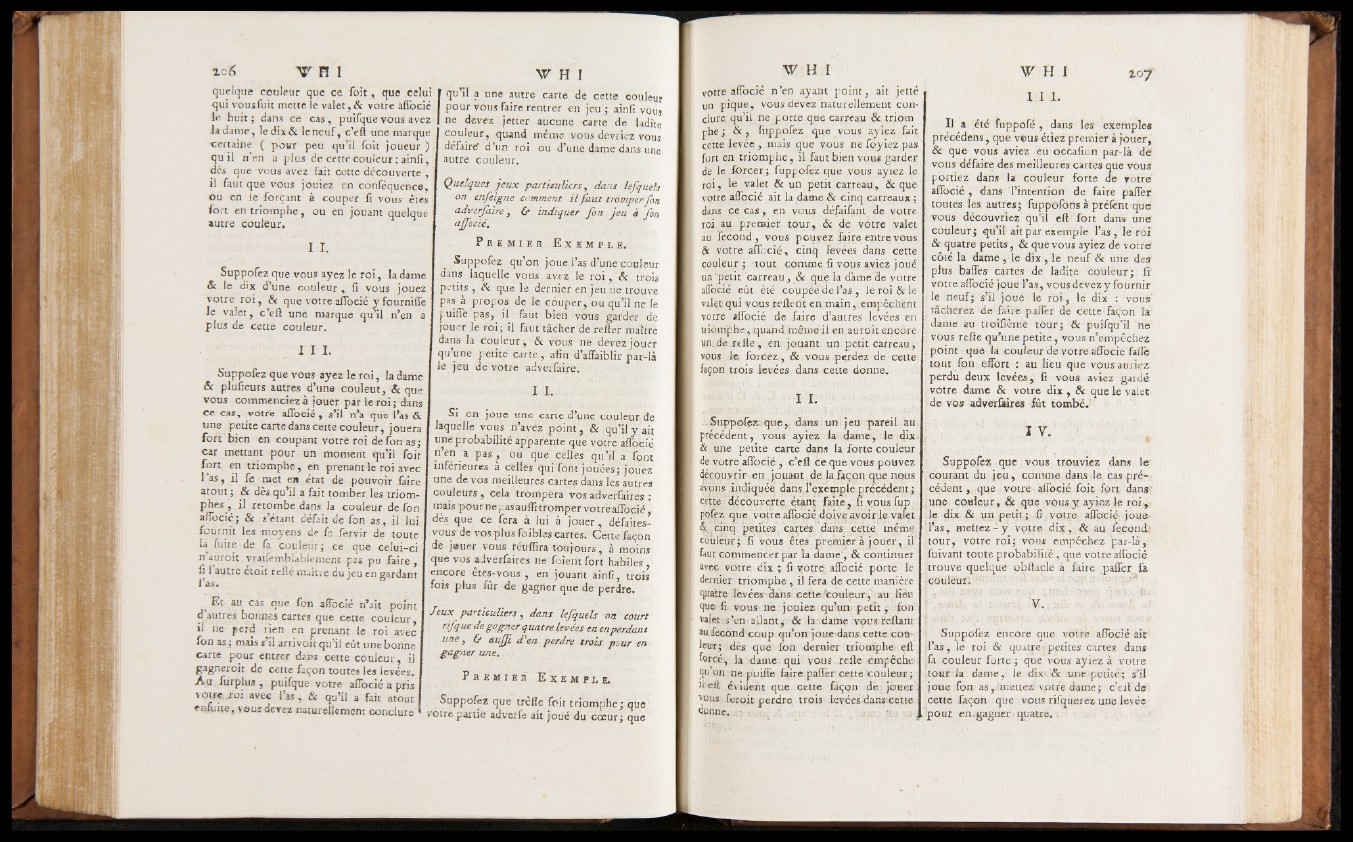 206 W H I
quelque couleur que ce ſoit, que celui
qui vous ſuit mette le valet, & votre aſſocié
le huit; dans ce cas, puiſque vous avez
la dame, le dix & le neuf, c'eſt une marque
certaine ( pour peu qu'il ſoit joueur )
qu'il n'en a plus de cette couleur: ainſi,
dès que vous avez fait cette découverte,
il faut que vous jouiez en conſéquence,
ou en le forçant à couper ſi vous êtes
fort en triomphe, ou en jouant quelque
autre couleur.
I I.
Suppoſez que vous ayez le roi, la dame
& le dix d'une couleur, ſi vous jouez
votre roi, & que votre aſſocié y fourniſſe
le valet, c'eſt une marque qu'il n'en a
plus de cette couleur.
I I I.
Suppoſez que vous ayez le roi, la dame
& pluſieurs autres d'une couleur, & que
vous commenciez à jouer par le roi; dans
ce cas, votre aſſocié, s'il n'a que l'as &
une petite carte dans cette couleur, jouera
fort bien en coupant votre roi de ſon as;
car mettant pour un moment qu'il ſoit
fort en triomphe, en prenant le roi avec
l'as, il ſe met en état de pouvoir faire
atout; & dès qu'il a fait tomber les triom-
phes, il retombe dans la couleur de ſon
aſſocié; & s'étant défait de ſon as, il lui
fournit les moyens de ſe ſervir de toute
la ſuite de ſa couleur; ce que celui-ci
n'auroit vraiſemblablement pas pu faire,
ſi l'autre étoit reſté maître du jeu en gardant
l'as.
Et au cas que ſon aſſocié n'ait point
d'autres bonnes cartes que cette couleur,
il ne perd rien en prenant le roi avec
ſon as; mais s'il arrivoit qu'il eût une bonne
carte pour entrer dans cette couleur, il
gagneroit de cette façon toutes les levées.
Au ſurplus, puiſque votre aſſocié a pris
votre roi avec l'as, & qu'il a fait atout
enſuite, vous devez naturellement conclure
W H I
qu'il a une autre carte de cette couleur
pour vous faire rentrer en jeu; ainſi vous
ne devez jetter aucune carte de ladite
couleur, quand même vous devriez vous
défaire d'un roi ou d'une dame dans une
autre couleur.
Quelques jeux particuliers, dans leſquels
on enſeigne comment il faut tromper ſon
adverſaire, & indiquer ſon jeu à ſon
aſſocié.
PREMIER EXEMPLE.
Suppoſez qu'on joue l'as d'une couleur
dans laquelle vous avez le roi, & trois
petits, & que le dernier en jeu ne trouve
pas à propos de le couper, ou qu'il ne le
puiſſe pas, il faut bien vous garder de
jouer le roi; il faut tâcher de reſter maître
dans la couleur, & vous ne devez jouer
qu'une petite carte, afin d'affaiblir par-là
le jeu de votre adverſaire.
I I.
Si on joue une carte d'une couleur de
laquelle vous n'avez point, & qu'il y ait
une probabilité apparente que votre aſſocié
n'en a pas, ou que celles qu'il a ſont
inférieures à celles qui ſont jouées; jouez
une de vos meilleures cartes dans les autres
couleurs, cela trompera vos adverſaires:
mais pour ne pas auſſi tromper votre aſſocié,
dès que ce ſera à lui à jouer, défaites-
vous de vos plus foibles cartes. Cette façon
de jouer vous réuſſira toujours, à moins
que vos adverſaires ne ſoient fort habiles,
encore êtes-vous, en jouant ainſi, trois
fois plus ſûr de gagner que de perdre.
Jeux particuliers, dans leſquels on court
riſque de gagner quatre levées en en perdant
une, & auſſi d'en perdre trois pour en
gagner une.
PREMIER EXEMPLE.
Suppoſez que trèfle ſoit triomphe; que
votre partie adverſe ait joué du cœur; que
W H I
votre aſſocié n'en ayant point, ait jetté
un pique, vous devez naturellement con-
clure qu'il ne porte que carreau & triom-
phe; &, ſuppoſez que vous ayiez fait
cette levée, mais que vous ne ſoyiez pas
fort en triomphe, il faut bien vous garder
de le forcer; ſuppoſez que vous ayiez le
roi, le valet & un petit carreau, & que
votre aſſocié ait la dame & cinq carreaux;
dans ce cas, en vous défaiſant de votre
roi au premier tour, & de votre valet
au ſecond, vous pouvez faire entre vous
& votre aſſocié, cinq levées dans cette
couleur; tout comme ſi vous aviez joué
un petit carreau, & que la dame de votre
aſſocié eût été coupée de l'as, le roi & le
valet qui vous reſtent en main, empêchent
votre aſſocié de faire d'autres levées en
triomphe, quand même il en auroit encore
un de reſte, en jouant un petit carreau,
vous le forcez, & vous perdez de cette
façon trois levées dans cette donne.
I I.
Suppoſez que, dans un jeu pareil au
précédent, vous ayiez la dame, le dix
& une petite carte dans la forte couleur
de votre aſſocié, c'eſt ce que vous pouvez
découvrir en jouant de la façon que nous
avons indiquée dans l'exemple précédent;
cette découverte étant faite, ſi vous ſup-
poſez que votre aſſocié doive avoir le valet
& cinq petites cartes dans cette même
couleur; ſi vous êtes premier à jouer, il
faut commencer par la dame, & continuer
avec votre dix; ſi votre aſſocié porte le
dernier triomphe, il fera de cette manière
quatre levées dans cette couleur, au lieu
que ſi vous ne jouiez qu'un petit, ſon
valet s'en allant, & la dame vous reſtant
au ſecond coup qu'on joue dans cette cou-
leur; dès que ſon dernier triomphe eſt
forcé, la dame qui vous reſte empêche
qu'on ne puiſſe faire paſſer cette couleur;
il eſt évident que cette façon de jouer
vous feroit perdre trois levées dans cette
donne.
W H I 207
I I I.
Il a été ſuppoſé, dans les exemples
précédens, que vous étiez premier à jouer,
& que vous aviez eu occaſion par-là de
vous défaire des meilleures cartes que vous
portiez dans la couleur forte de votre
aſſocié, dans l'intention de faire paſſer
toutes les autres; ſuppoſons à préſent que
vous découvriez qu'il eſt fort dans une
couleur; qu'il ait par exemple l'as, le roi
& quatre petits, & que vous ayiez de votre
côté la dame, le dix, le neuf & une des
plus baſſes cartes de ladite couleur; ſi
votre aſſocié joue l'as, vous devez y fournir
le neuf; s'il joue le roi, le dix: vous
tâcherez de faire paſſer de cette façon la
dame au troiſième tour; & puiſqu'il ne
vous reſte qu'une petite, vous n'empêchez
point que la couleur de votre aſſocié faſſe
tout ſon effort: au lieu que vous auriez
perdu deux levées, ſi vous aviez gardé
votre dame & votre dix, & que le valet
de vos adverſaires fût tombé.
I V.
Suppoſez que vous trouviez dans le
courant du jeu, comme dans le cas pré-
cédent, que votre aſſocié ſoit fort dans
une couleur, & que vous y ayiez le roi,
le dix & un petit; ſi votre aſſocié joue
l'as, mettez-y votre dix, & au ſecond
tour, votre roi; vous empêchez par-là,
ſuivant toute probabilité, que votre aſſocié
trouve quelque obſtacle à faire paſſer ſa
couleur.
V.
Suppoſez encore que votre aſſocié ait
l'as, le roi & quatre petites cartes dans
ſa couleur forte; que vous ayiez à votre
tour la dame, le dix & une petite; s'il
joue ſon as, mettez votre dame; c'eſt de
cette façon que vous riſquerez une levée
pour en gagner quatre.